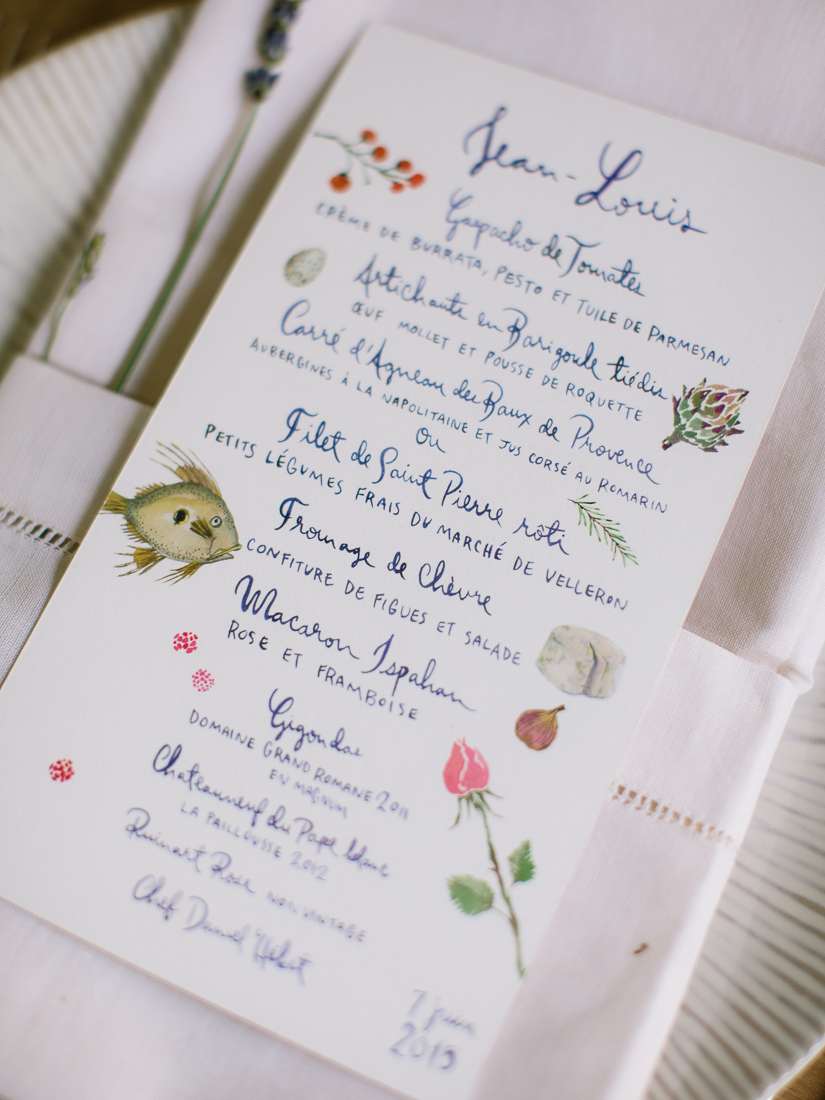 Jean-Louis
Gaspacho de Tomates
CRÈME DE BURRATA, PESTO ET TUILE DE PARMESAN
Artichaute en Barigoule tiédis
ŒUF MOLLET ET POUSSE DE ROQUETTE
Carré d'Agneau des Baux de Provence
AUBERGINES À LA NAPOLITAINE ET JUS CORSÉ AU ROMARIN
Ou
Filet de Saint Pierre rôti
PETITS LÉGUMES FRAIS DU MARCHÉ DE VELLERON
Fromage de Chèvre
CONFITURE DE FIGUES ET SALADE
Macaron Ispahan
ROSE ET FRAMBOISE
Gigondas
DOMAINE GRAND ROMANE 2011
EN MAGNUM
Chateauneuf du Pape blanc
LA PAILLOUSSE 2012
Ruinart Rose NON VINTAGE
Chef Daniel Hébet
7 juin
2015